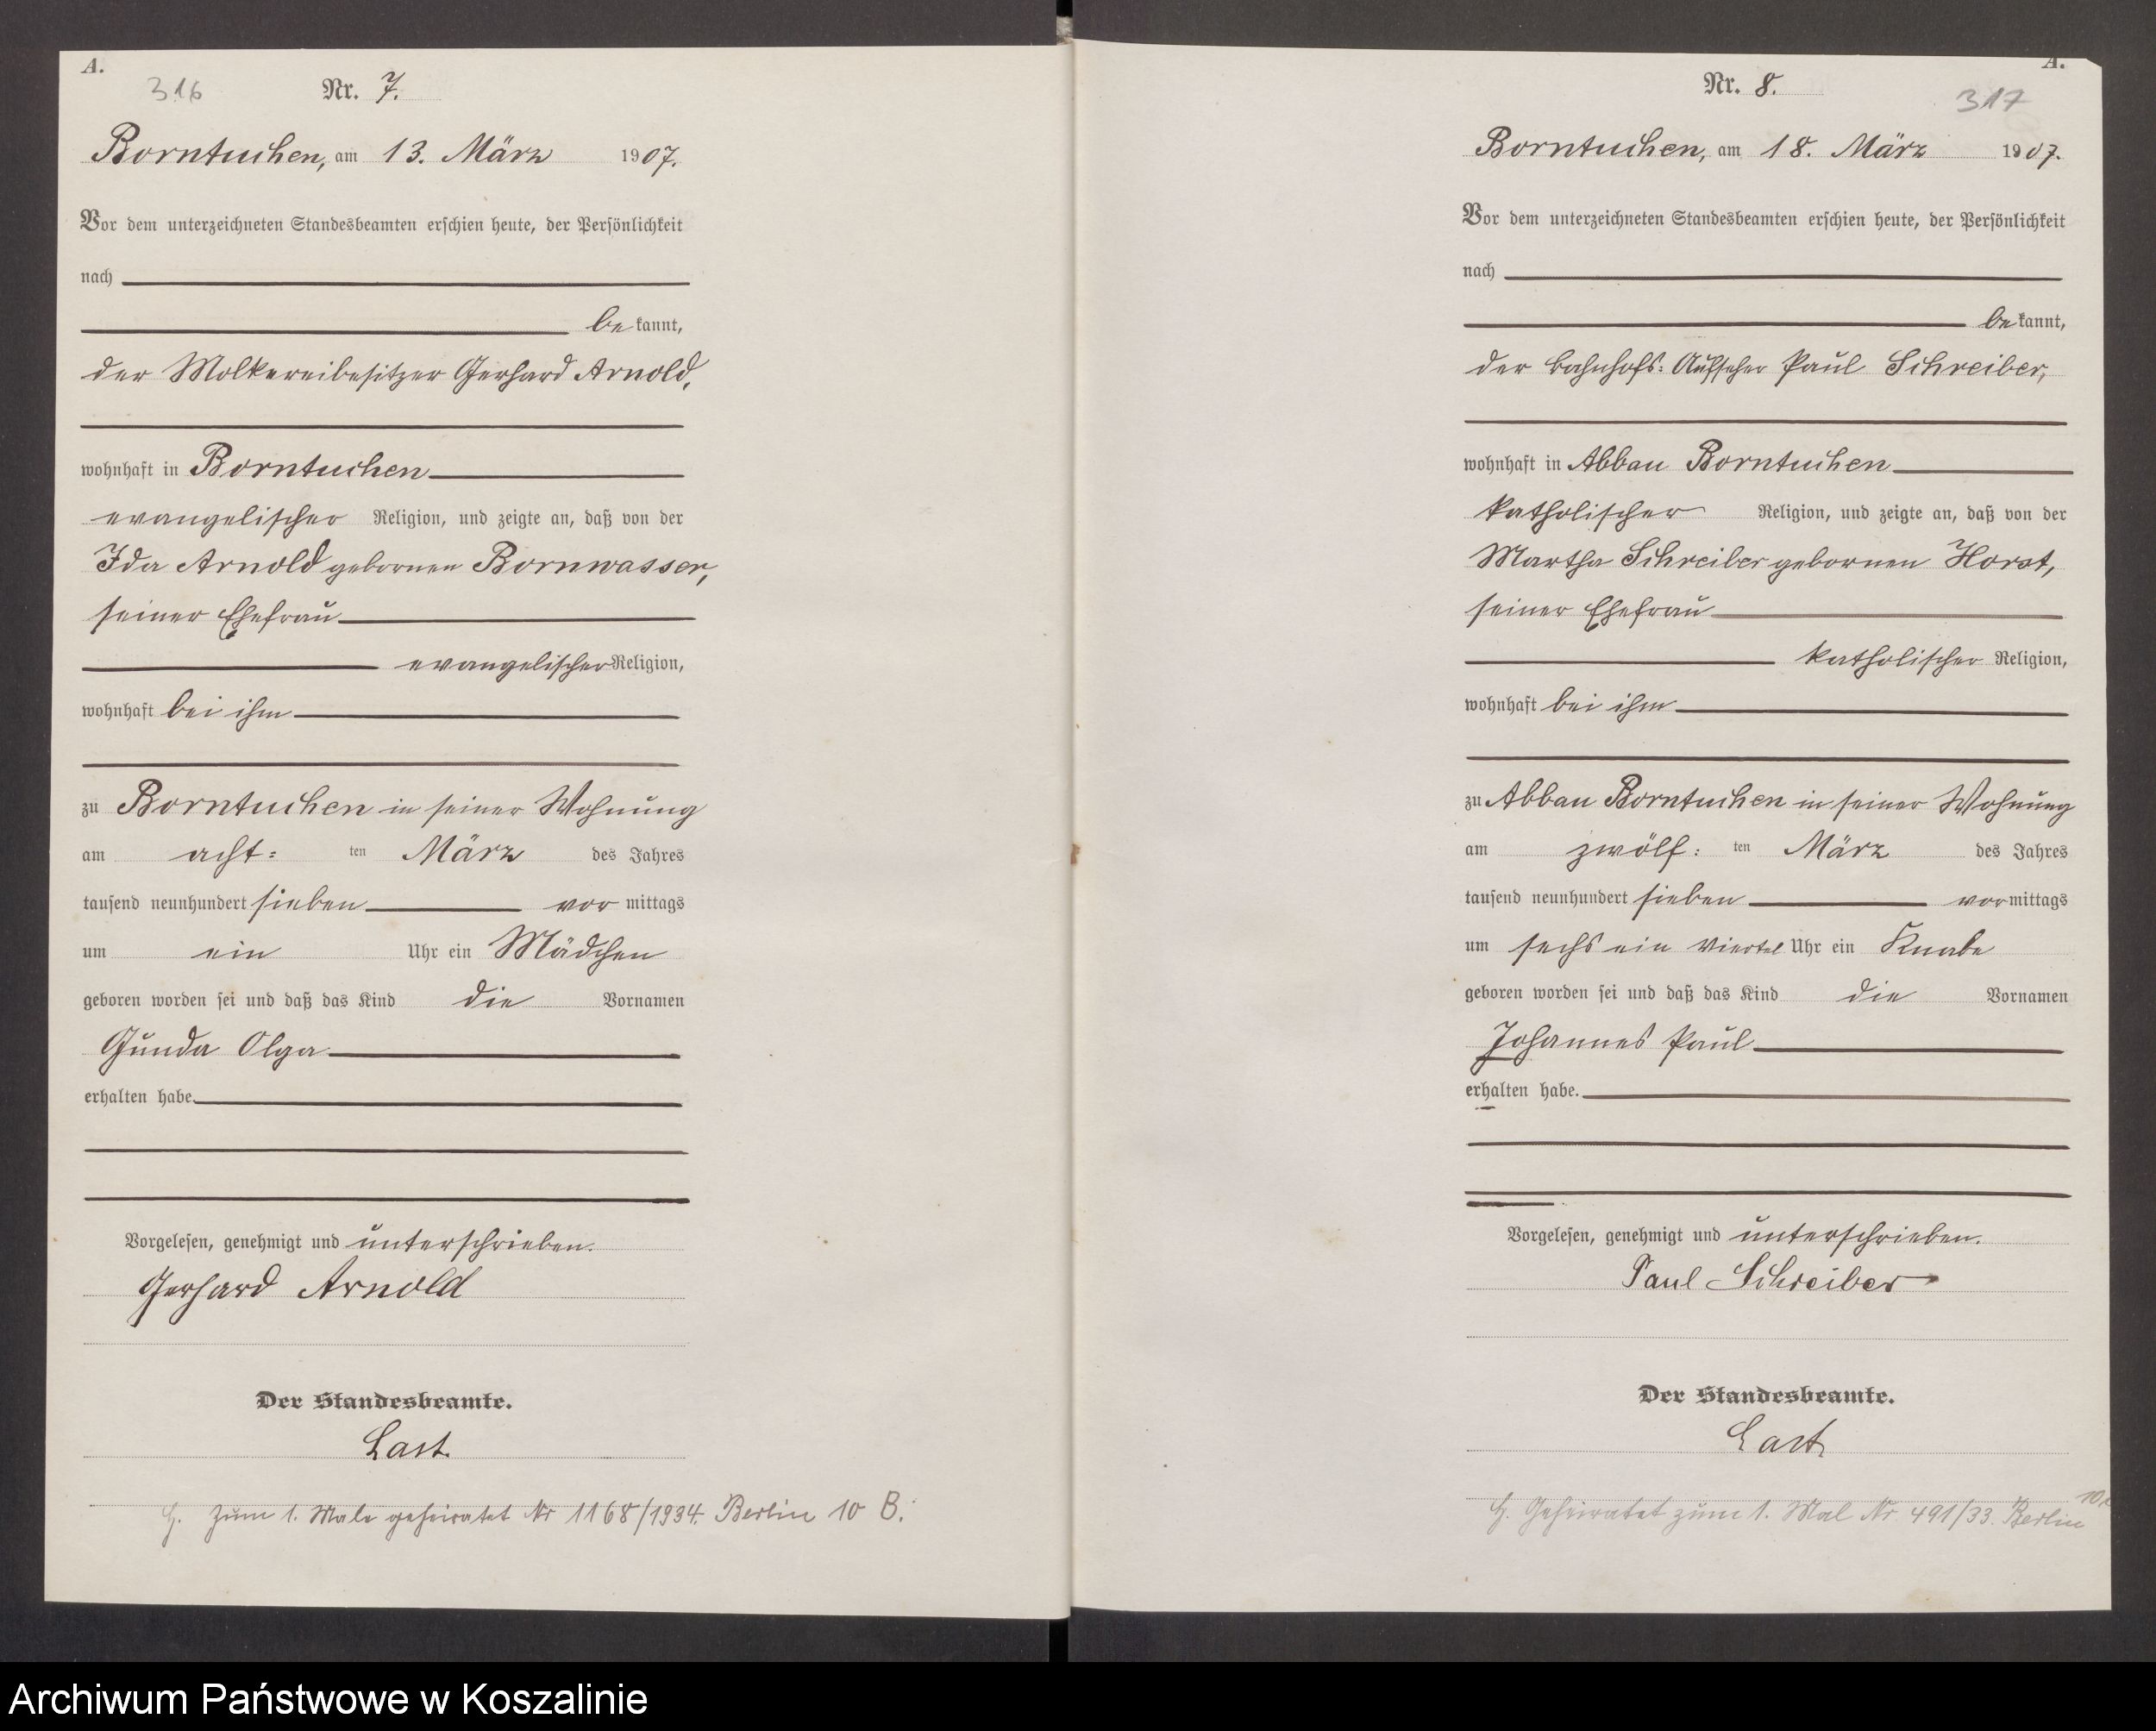 A.
316
Nr. 7.
Borntuchen, am 13. März 1907.
Vor dem unterzeichneten Standesbeamten erschien heute, der Persönlichkeit
nach
be kannt,
der Molkereibesitzer Gerhard Arnold,
wohnhaft in Borntuchen
evangelischer Religion, und zeigte an, daß von der
Ida Arnold gebornen Bornwasser,
seiner Ehefrau
evangelischer Religion,
wohnhaft bei ihm
zu Borntuchen in seiner Wohnung
am acht= ten März des Jahres
tausend neunhundert sieben vor mittags
um ein Uhr ein Mädchen
geboren worden sei und daß das Kind die Vornamen
Gunda Olga
erhalten habe.
Vorgelesen, genehmigt und unterschrieben.
Gerhard Arnold
Der Standesbeamte.
Last.
H. Zum 1. Male geheiratet Nr 1168/1934. Berlin 10 B.
A.
317
Nr. 8.
Borntuchen, am 18. März 1907.
Vor dem unterzeichneten Standesbeamten erschien heute, der Persönlichkeit
nach
be kannt,
der Bahnhofs= Aufseher Paul Schreiber,
wohnhaft in Abbau Borntuchen
katholischer Religion, und zeigte an, daß von der
Martha Schreiber gebornen Horst,
seiner Ehefrau
katholischer Religion,
wohnhaft bei ihm
zu Abbau Borntuchen in seiner Wohnung
am zwölf= ten März des Jahres
tausend neunhundert sieben vor mittags
um sechs ein viertel Uhr ein Knabe
geboren worden sei und daß das Kind die Vornamen
Johannes Paul
erhalten habe.
Vorgelesen, genehmigt und unterschrieben.
Paul Schreiber
Der Standesbeamte.
Last
H. Geheiratet zum 1. Mal Nr. 491/33. Berlin
Archiwum Państwowe w Koszalinie